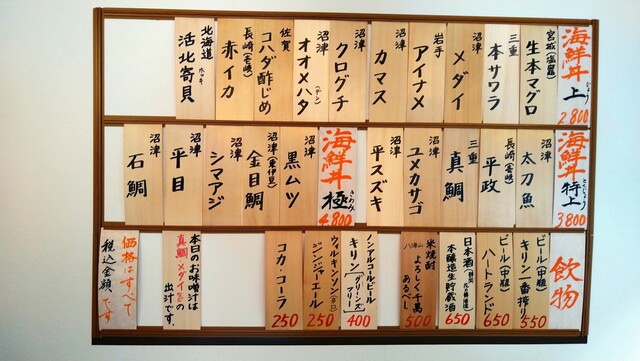 海鮮丼 上 じょう 2,800
宮城(塩竈) 生本マグロ
三重 本サワラ
沼津 メダイ
岩手 アイナメ
沼津 カマス
沼津 クログチ
沼津 オオメハタ(デン)
佐賀 コハダ酢じめ
長崎(壱岐) 赤イカ
北海道 活北寄貝 ホッキ
海鮮丼 特上 とくじょう 3800
沼津 太刀魚
長崎(壱岐) 平政
三重 真鯛
沼津 ユメカサゴ
沼津 平スズキ
海鮮丼 極 きわみ 4,800
沼津 黒ムツ
沼津(東伊豆) 金目鯛
沼津 シマアジ
沼津 平目
沼津 石鯛
飲物
ビール(中瓶)
キリン一番搾り 550
ビール(中瓶)
ハートランド 650
日本酒
本醸造生貯蔵酒 650
米焼酎
よろしく千萬
あるべし 500
ノンアルコールビール
キリン[グリーンズフリー] 400
ウィルキンソン(辛口)
ジンジャエール 250
コカ・コーラ 250
本日のお味噌汁は
真鯛・メダイetcの
出汁です。
価格はすべて
税込金額です